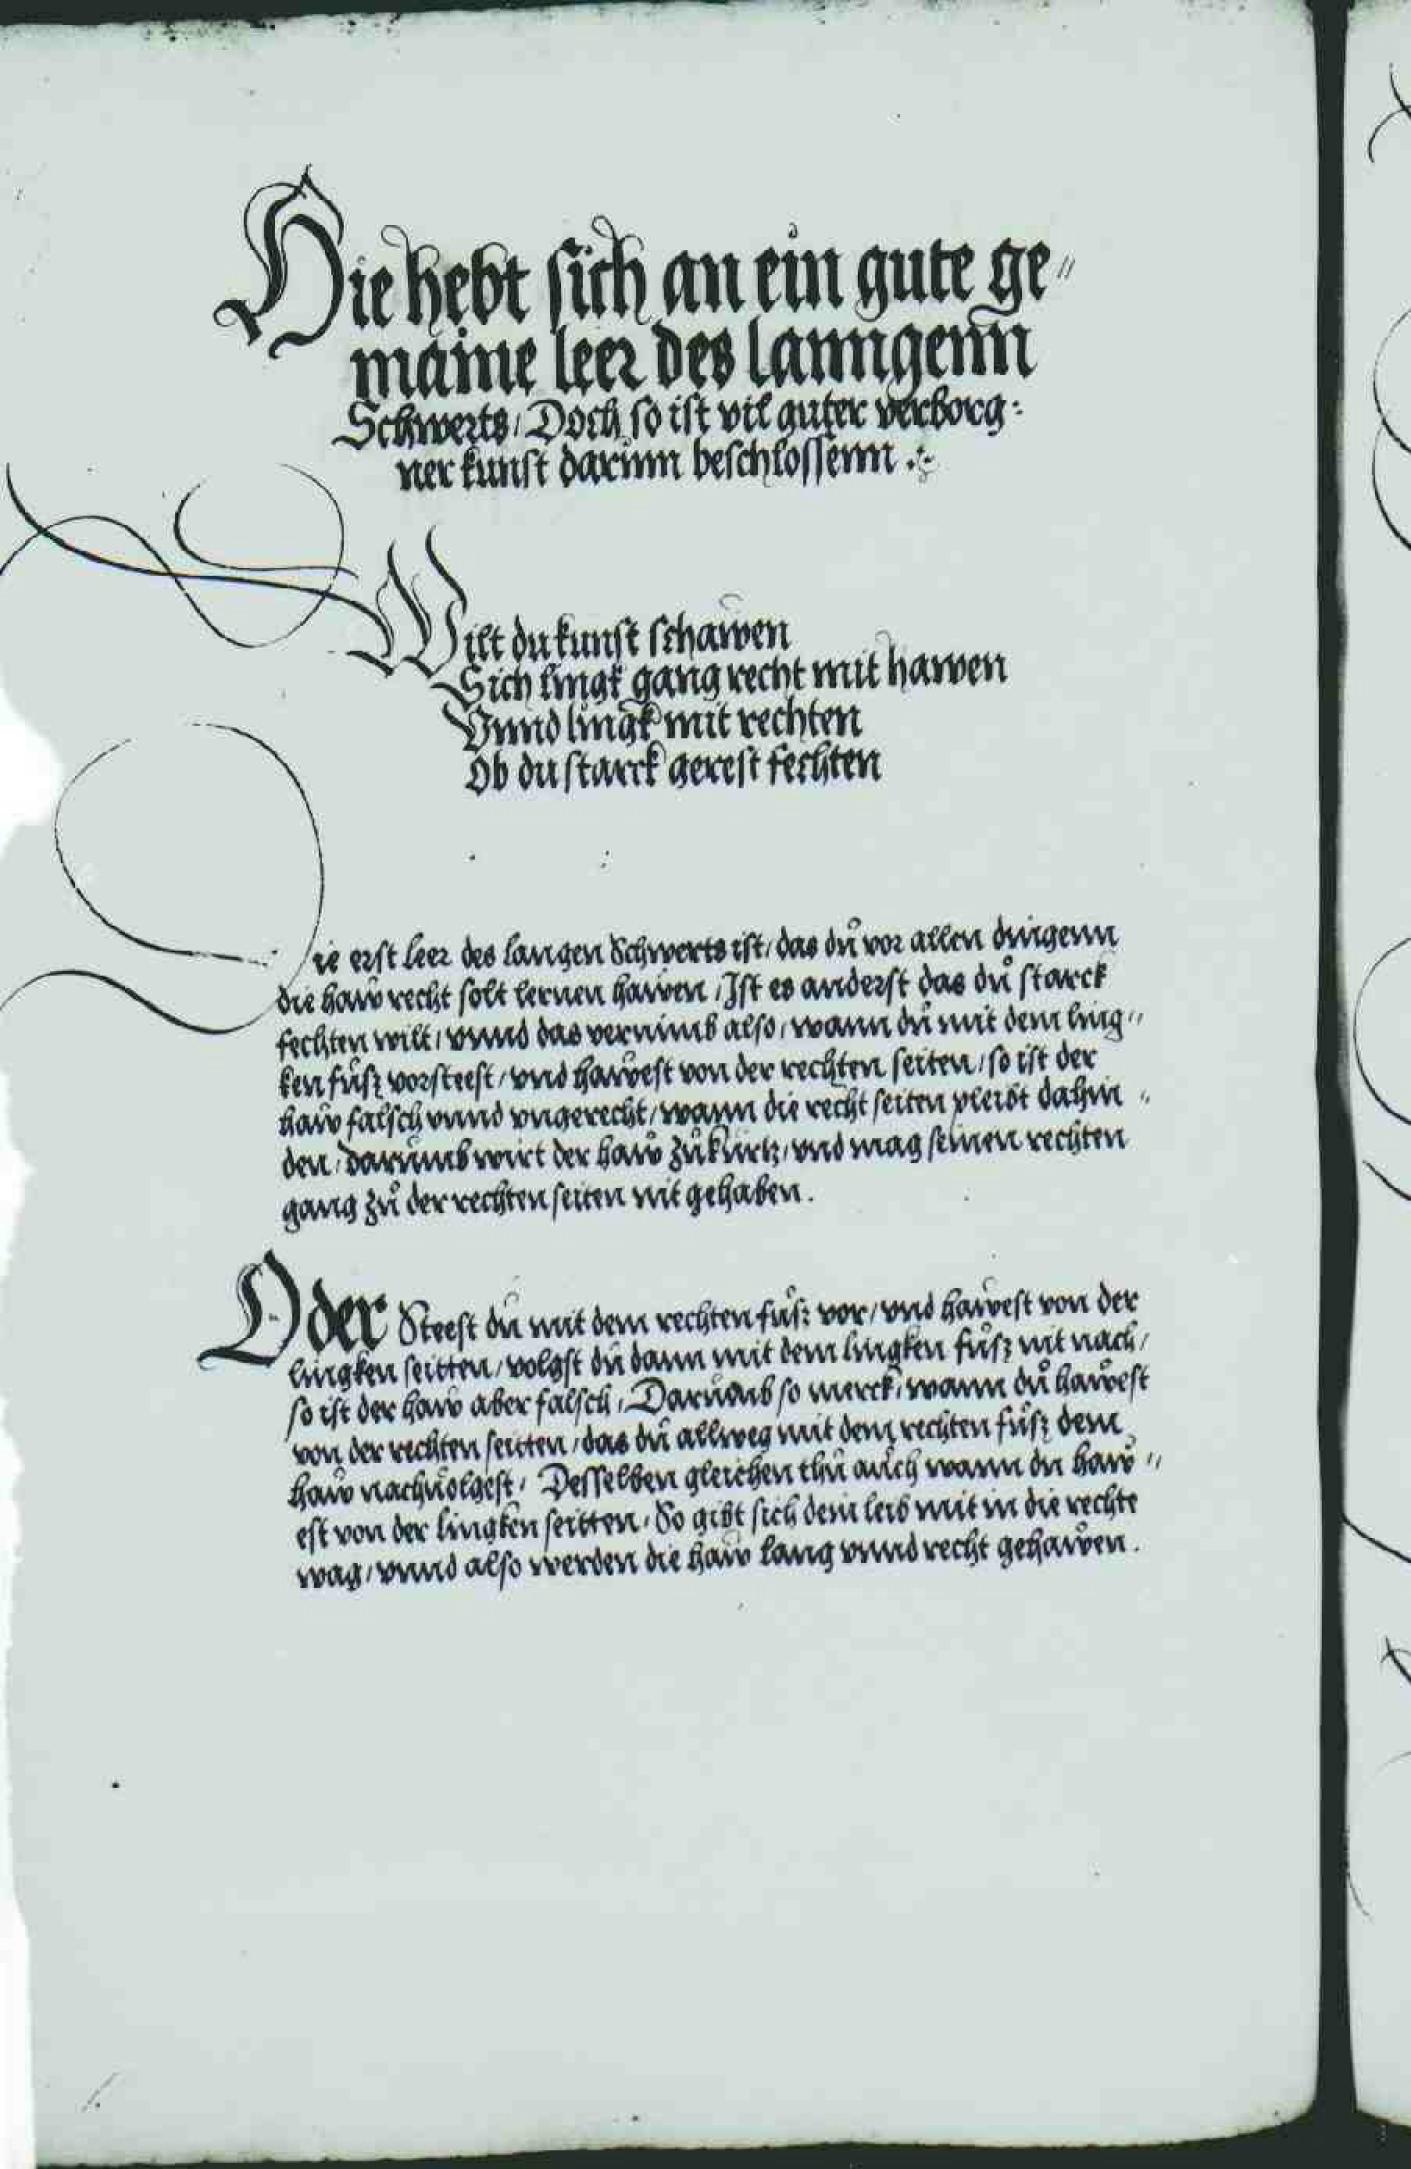 Hie hebt sich an ein gute ge〃
maine leer des lanngenn
Schwerts / Doch so ist vil guter verborg:
ner kunst darinn beschlossenn .
Wilt du kunst schawen
Sich lingk gang recht mit hawen
Vnnd lingk mit rechten
Ob du starck gerest fechten
ie erst leer des langen Schwerts ist / das dů vor allen dingenn
die haw recht solt lernen hawen / Ist es anderst das dů starck
fechten wilt / vnnd das vernimb also / wann dů mit dem ling〃
ken fůsz vorsteest / vnd hawest von der rechten seiten / so ist der
haw falsch vnnd vngerecht / wann die recht seiten pleibt dahin〃
den / darumb wirt der haw zů kurtz / vnd mag seinen rechten
gang zů der rechten seiten nit gehaben .
Oder Steest dů mit dem rechten fůsz vor / vnd hawest von der
lingken seitten / volgst dů dann mit dem lingken fůsz nit nach /
so ist der haw aber falsch / Darumb so merck / wann dů hawest
von der rechten seitten / das dů allweg mit dem rechten fůsz dem
haw nachuolgest / Desselben gleichen thů auch wann du haw〃
est von der lingken seitten / So gibt sich dein leib mit in die rechte
wag / vnnd also werden die haw lang vnnd recht gehawen .